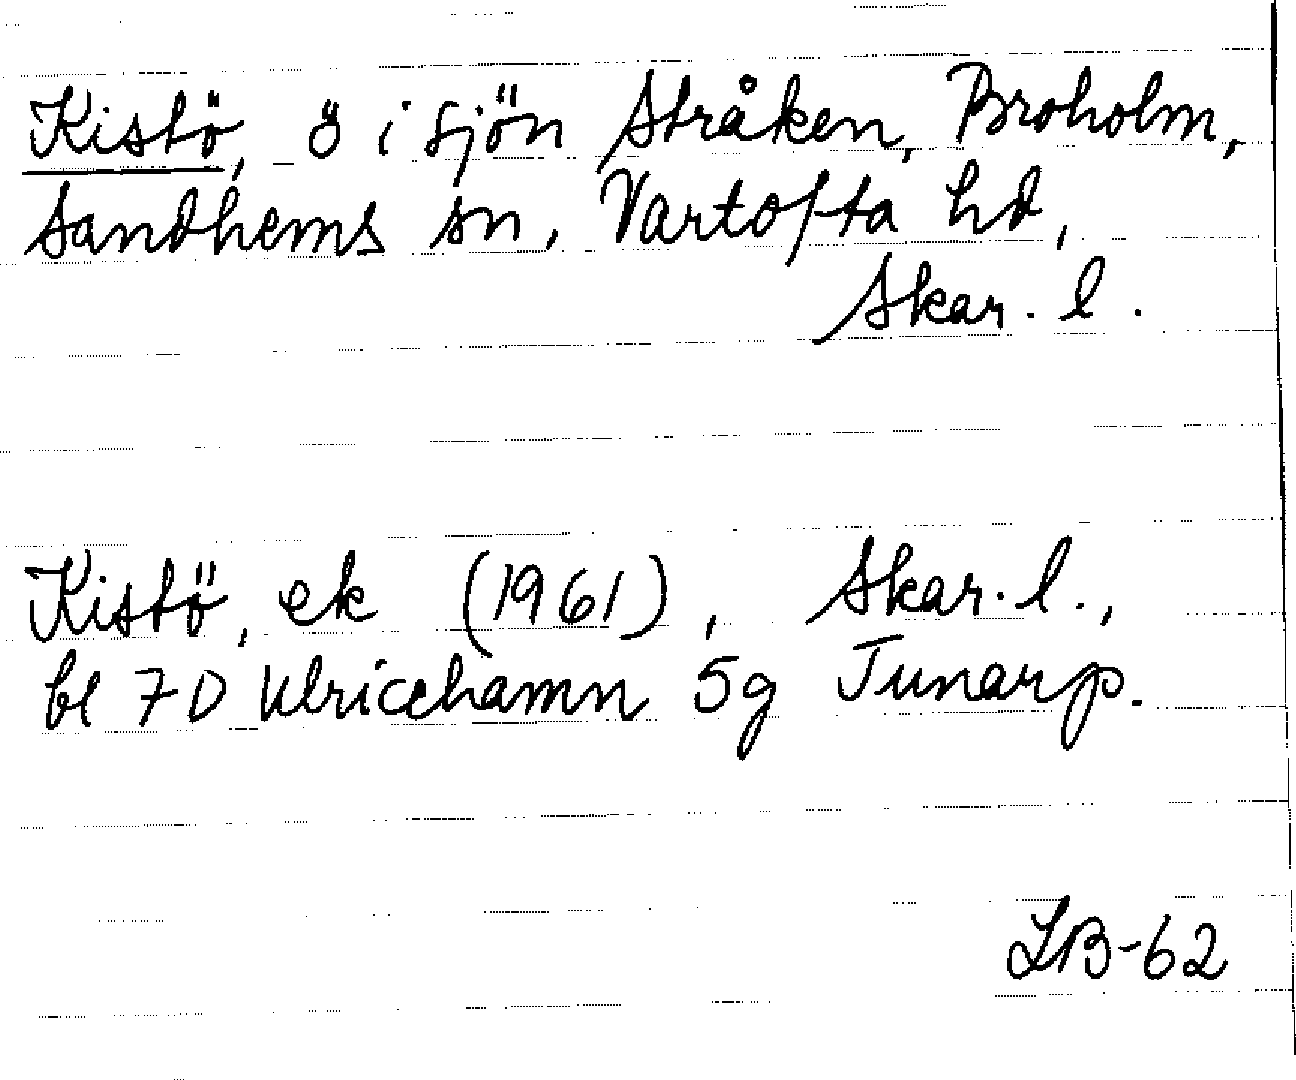 Kistö, ö i sjön Stråken, Broholm,
Sandhems sn, Vartofta hd,
Skar. l.
Kistö, ek (1961), Skar. l.,
bl 7D Ulricehamn 5g Tunarp.
LB-62